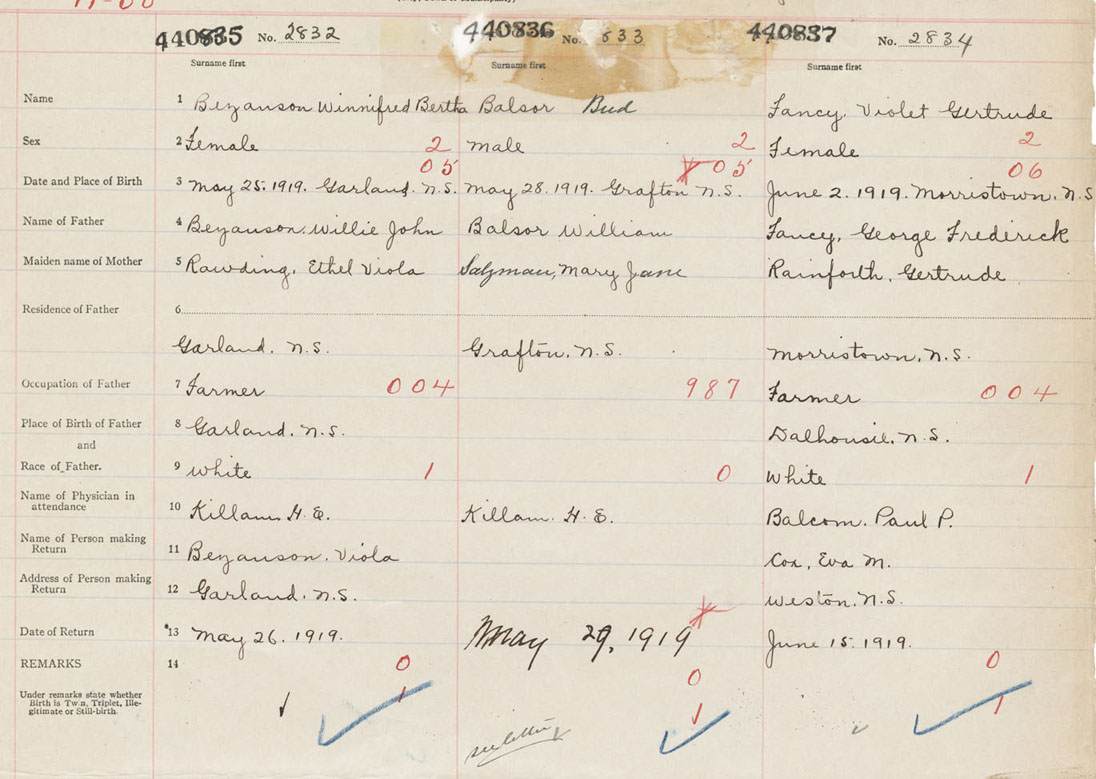 440835 No. 2832 440836 No. 833 440837 No. 2834
Surname first Surname first Surname first
Name 1 Bezanson Winnifred Bertha Balsor Bud Fancy, Violet Gertrude
Sex 2 Female 2 male 2 Female 2
05 05 06
Date and Place of Birth 3 May 25. 1919. Garland, N.S. May 28. 1919. Grafton N.S. June 2. 1919. Morristown, N.S
Name of Father 4 Bezanson, Willie John Balsor William Fancy, George Frederick
Maiden name of Mother 5 Rawding, Ethel Viola Salzman, Mary Jane Rainforth, Gertrude
Residence of Father 6
Garland, N.S. Grafton, N.S. Morristown, N.S.
Occupation of Father 7 Farmer 004 987 Farmer 004
Place of Birth of Father 8 Garland, N.S. Dalhousie, N.S.
and
Race of Father. 9 White 1 0 White 1
Name of Physician in
attendance 10 Killam. H. E. Killam. H. E. Balcom. Paul P.
Name of Person making
Return 11 Bezanson, Viola Cox, Eva M.
Address of Person making
Return 12 Garland, N.S. Weston, N.S.
Date of Return 13 May 26. 1919. May 29, 1919 June 15. 1919.
REMARKS 14 0 0 0
Under remarks state whether
Birth is Twin, Triplet, Ille-
gitimate or Still-birth. 1 1 1
see letter